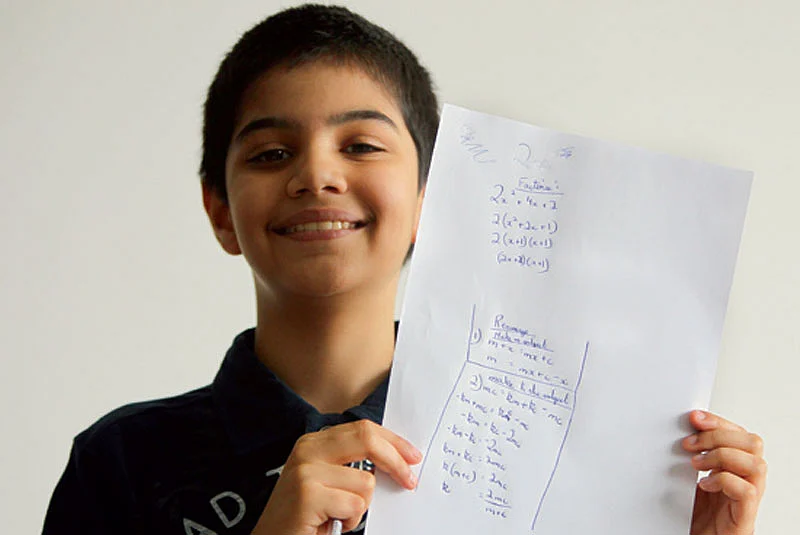 Factorise:
2x² + 4x + 2
2(x² + 2x + 1)
2(x+1)(x+1)
(2x+2)(x+1)
Rearrange
1) Make m subject
m + x = mx + c
m = mx + c - x
2) make k the subject
mc = km + kc - mc
-km + mc = kc - mc
-km = kc - 2mc
-km - kc = -2mc
km + kc = 2mc
k(m+c) = 2mc
k = 2mc
m+c
AD